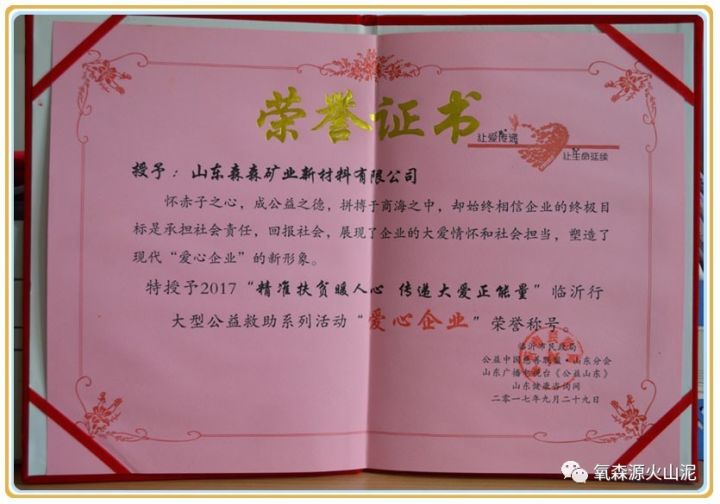 荣誉证书
让爱传递
让生命延续
授予：山东森森矿业新材料有限公司
怀赤子之心，成公益之德，拼搏于商海之中，却始终相信企业的终极目
标是承担社会责任，回报社会，展现了企业的大爱情怀和社会担当，塑造了
现代“爱心企业”的新形象。
特授予2017“精准扶贫暖人心 传递大爱正能量”临沂行
大型公益救助系列活动“爱心企业”荣誉称号。
临沂市民政局
公益中国慈善联盟·山东分会
山东广播电视台《公益山东》
山东健康咨询网
二零一七年九月二十九日
氧森源火山泥